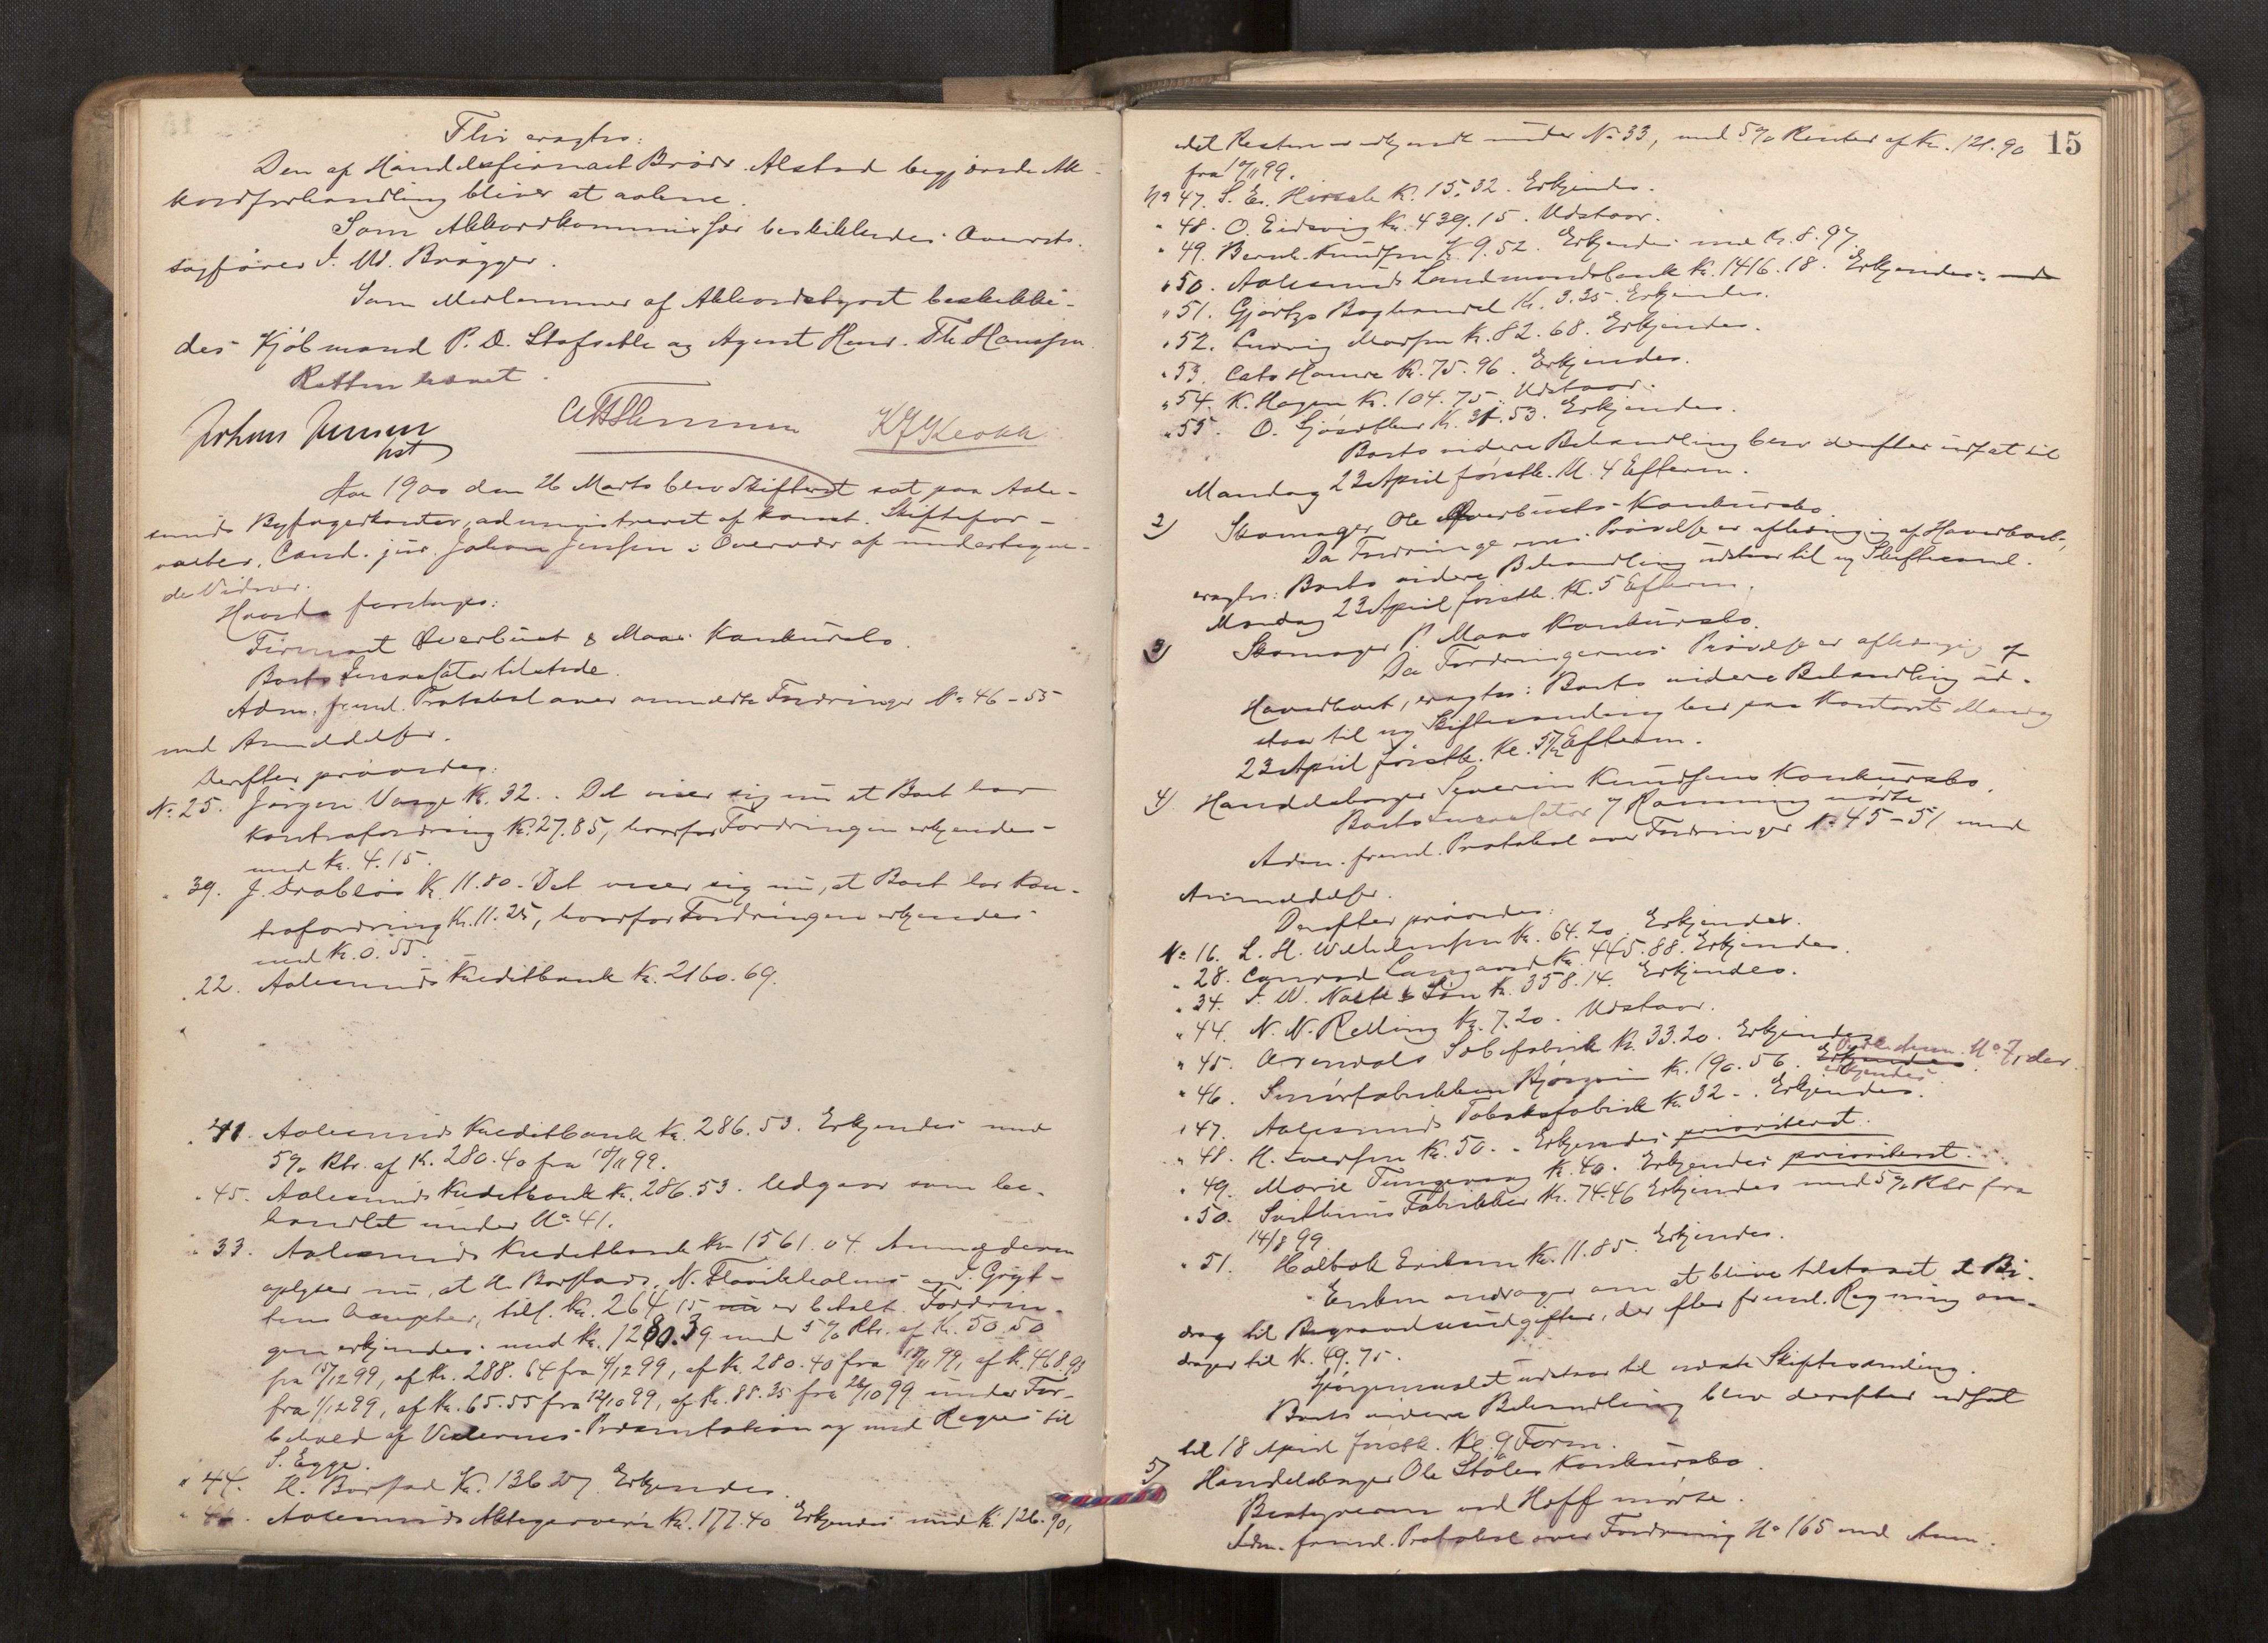 Thi eragtes:
Den af Handelsfirmaet Brødr. Alstad begjærede Ak-
kordforhandling bliver at aabne.
Som Akkordkommissær beskikkedes Overrets-
sagfører I. W. Brøgger.
Som Medlemmer af Akkordstyret beskikke-
des Kjøbmand P. D. Stafseth og Agent Henr. Th. Hanssen.
Retten hævet.
Johan Jensen
cst
Aar 1900 den 26 Marts blev Skifteret sat paa Aale-
sunds Byfogedkontor, administreret af konst. Skiftefor-
valter, Cand. jur. Johan Jensen i Overvær af undertegne-
de Vidner.
Hvorda foretoges:
Firmaet Øverbust & Maaø Konkursbo.
Boets Incassator tilstede.
Adm. freml. Protokol over anmeldte Fordringer No 46-55
med Anmeldelser.
Derefter prøvedes:
No 25. Jørgen Vaage Kr. 32.. Det viser sig nu at Boet har
kontrafordring Kr. 27.85, hvorfor Fordringen erkjendes
med Kr. 4.15.
" 39. J. Drabløs Kr. 11.80. Det viser sig nu, at Boet har Kon-
trafordring Kr. 11.25, hvorfor Fordringen erkjendes
med Kr. 0.55.
" 22. Aalesunds Kreditbank Kr. 2160.69.
" 41. Aalesunds Kreditbank Kr. 286.53. Erkjendes med
5% Rtr. af Kr. 280.40 fra 18/11 99.
" 45. Aalesunds Kreditbank Kr. 286.53. Udgaar som be-
handlet under No 41.
" 33. Aalesunds Kreditbank Kr 1561.04. Anmelderen
oplyser nu, at H. Borstads, N. Flovikholms og I. Gryt-
tens Accepter, tils. Kr. 264.15 nu er betalt. Fordrin-
gen erkjendes med Kr. 1280.39 med 5% Rtr. af Kr. 50.50
fra 15/12 99, af Kr. 288.64 fra 4/12 99, af Kr. 280.40 fra 18/11 99, af Kr. 468.93
fra 1/12 99, af Kr. 65.55 fra 12/10 99, af Kr. 88.35 fra 26/10 99 under For-
behold af Vexlernes Præsentation og med Regres til
S. Egge.
" 44. H. Borstad Kr. 136.27. Erkjendes.
" 46. Aalesunds Aktieølverei Kr. 177.40 Erkjendes med Kr. 126.90,
15
idet Resten er erkjendt under No 33, med 5% Renter af Kr. 121.90
fra 1/11 99.
No 47. S. Es. Kr. 15.32. Erkjendes.
" 48. O. Eidsvig Kr. 439.15. Udstaar.
" 49. Bernh. Knudsen Kr. 9.52. Erkjendes med Kr. 8.97.
" 50. Aalesunds Landmandsbank Kr. 1416.18. Erkjendes med
" 51. Gjørtzs Boghandel Kr. 3.35. Erkjendes.
" 52. Ludvig Madsen Kr. 82.68. Erkjendes.
" 53. Cato Hamre Kr. 75.96. Erkjendes.
" 54. K. Hagen Kr. 104.75. Udstaar.
" 55. O. Kr. 31.53. Erkjendes.
Boets videre Behandling blev derefter udsat til
Mandag 23 April førstk. Kl. 4 Efterm.
2) Skomager Ole Øverbusts Konkursbo.
Da Fordringernes Prøvelse er afhængig af Hovedboet,
eragtes: Boets videre Behandling udstaar til ny Skiftesaml.
Mandag 23 April førstk. Kl. 5 Efterm.
3) Skomager P. Maaø Konkursbo.
Da Fordringernes Prøvelse er afhængig af
Hovedboet, eragtes: Boets videre Behandling ud-
staar til ny Skiftesamling her paa Kontoret Mandag
23 April førstk. Kl. 5 1/2 Efterm.
4) Handelsborger Severin Knudsens Konkursbo.
Boets Incassator og Ramning mødte
Adm. freml. Protokol over Fordringer No 45-51 med
Anmeldelser.
Derefter prøvedes:
No 16. L. H. Wilhelmsen Kr. 64.20. Erkjendes.
" 28. Conrad Langaard Kr. 445.88. Erkjendes.
" 34. I. W. & Søn Kr. 358.14. Erkjendes.
" 44. N. N. Relling Kr. 7.20. Udstaar.
" 45. Arendals Kr. 33.20. Erkjendes.
" 46. Smørfabrikken Kr. 190.56. Erkjendes. No 7, der
erkjendes.
" 47. Aalesunds Tobaksfabrik Kr. 32.-. Erkjendes.
" 48. H. Iversen Kr. 50.-. Erkjendes prioriteret.
" 49. Marie Tungevaag Kr. 40. Erkjendes prioriteret.
" 50. Fabrikker Kr. 74.46 Erkjendes med 5% Rtr fra
14/8 99
" 51. Holbek Eriksen Kr. 11.85. Erkjendes.
Enken andrager om at blive tilstaaet et Bi-
drag til Begravelsesudgifter, der efter freml. Regning an-
drager til Kr. 49.75.
Spørgsmaalet udstaar til næste Skiftesamling.
Boets videre Behandling blev derefter udsat
til 18 April førstk. Kl. 9 Form.
5) Handelsborger Ole Støles Konkursbo.
Bestyreren ved Hoff mødte.
Adm. freml. Protokol over Fordring No 165 med Anm.